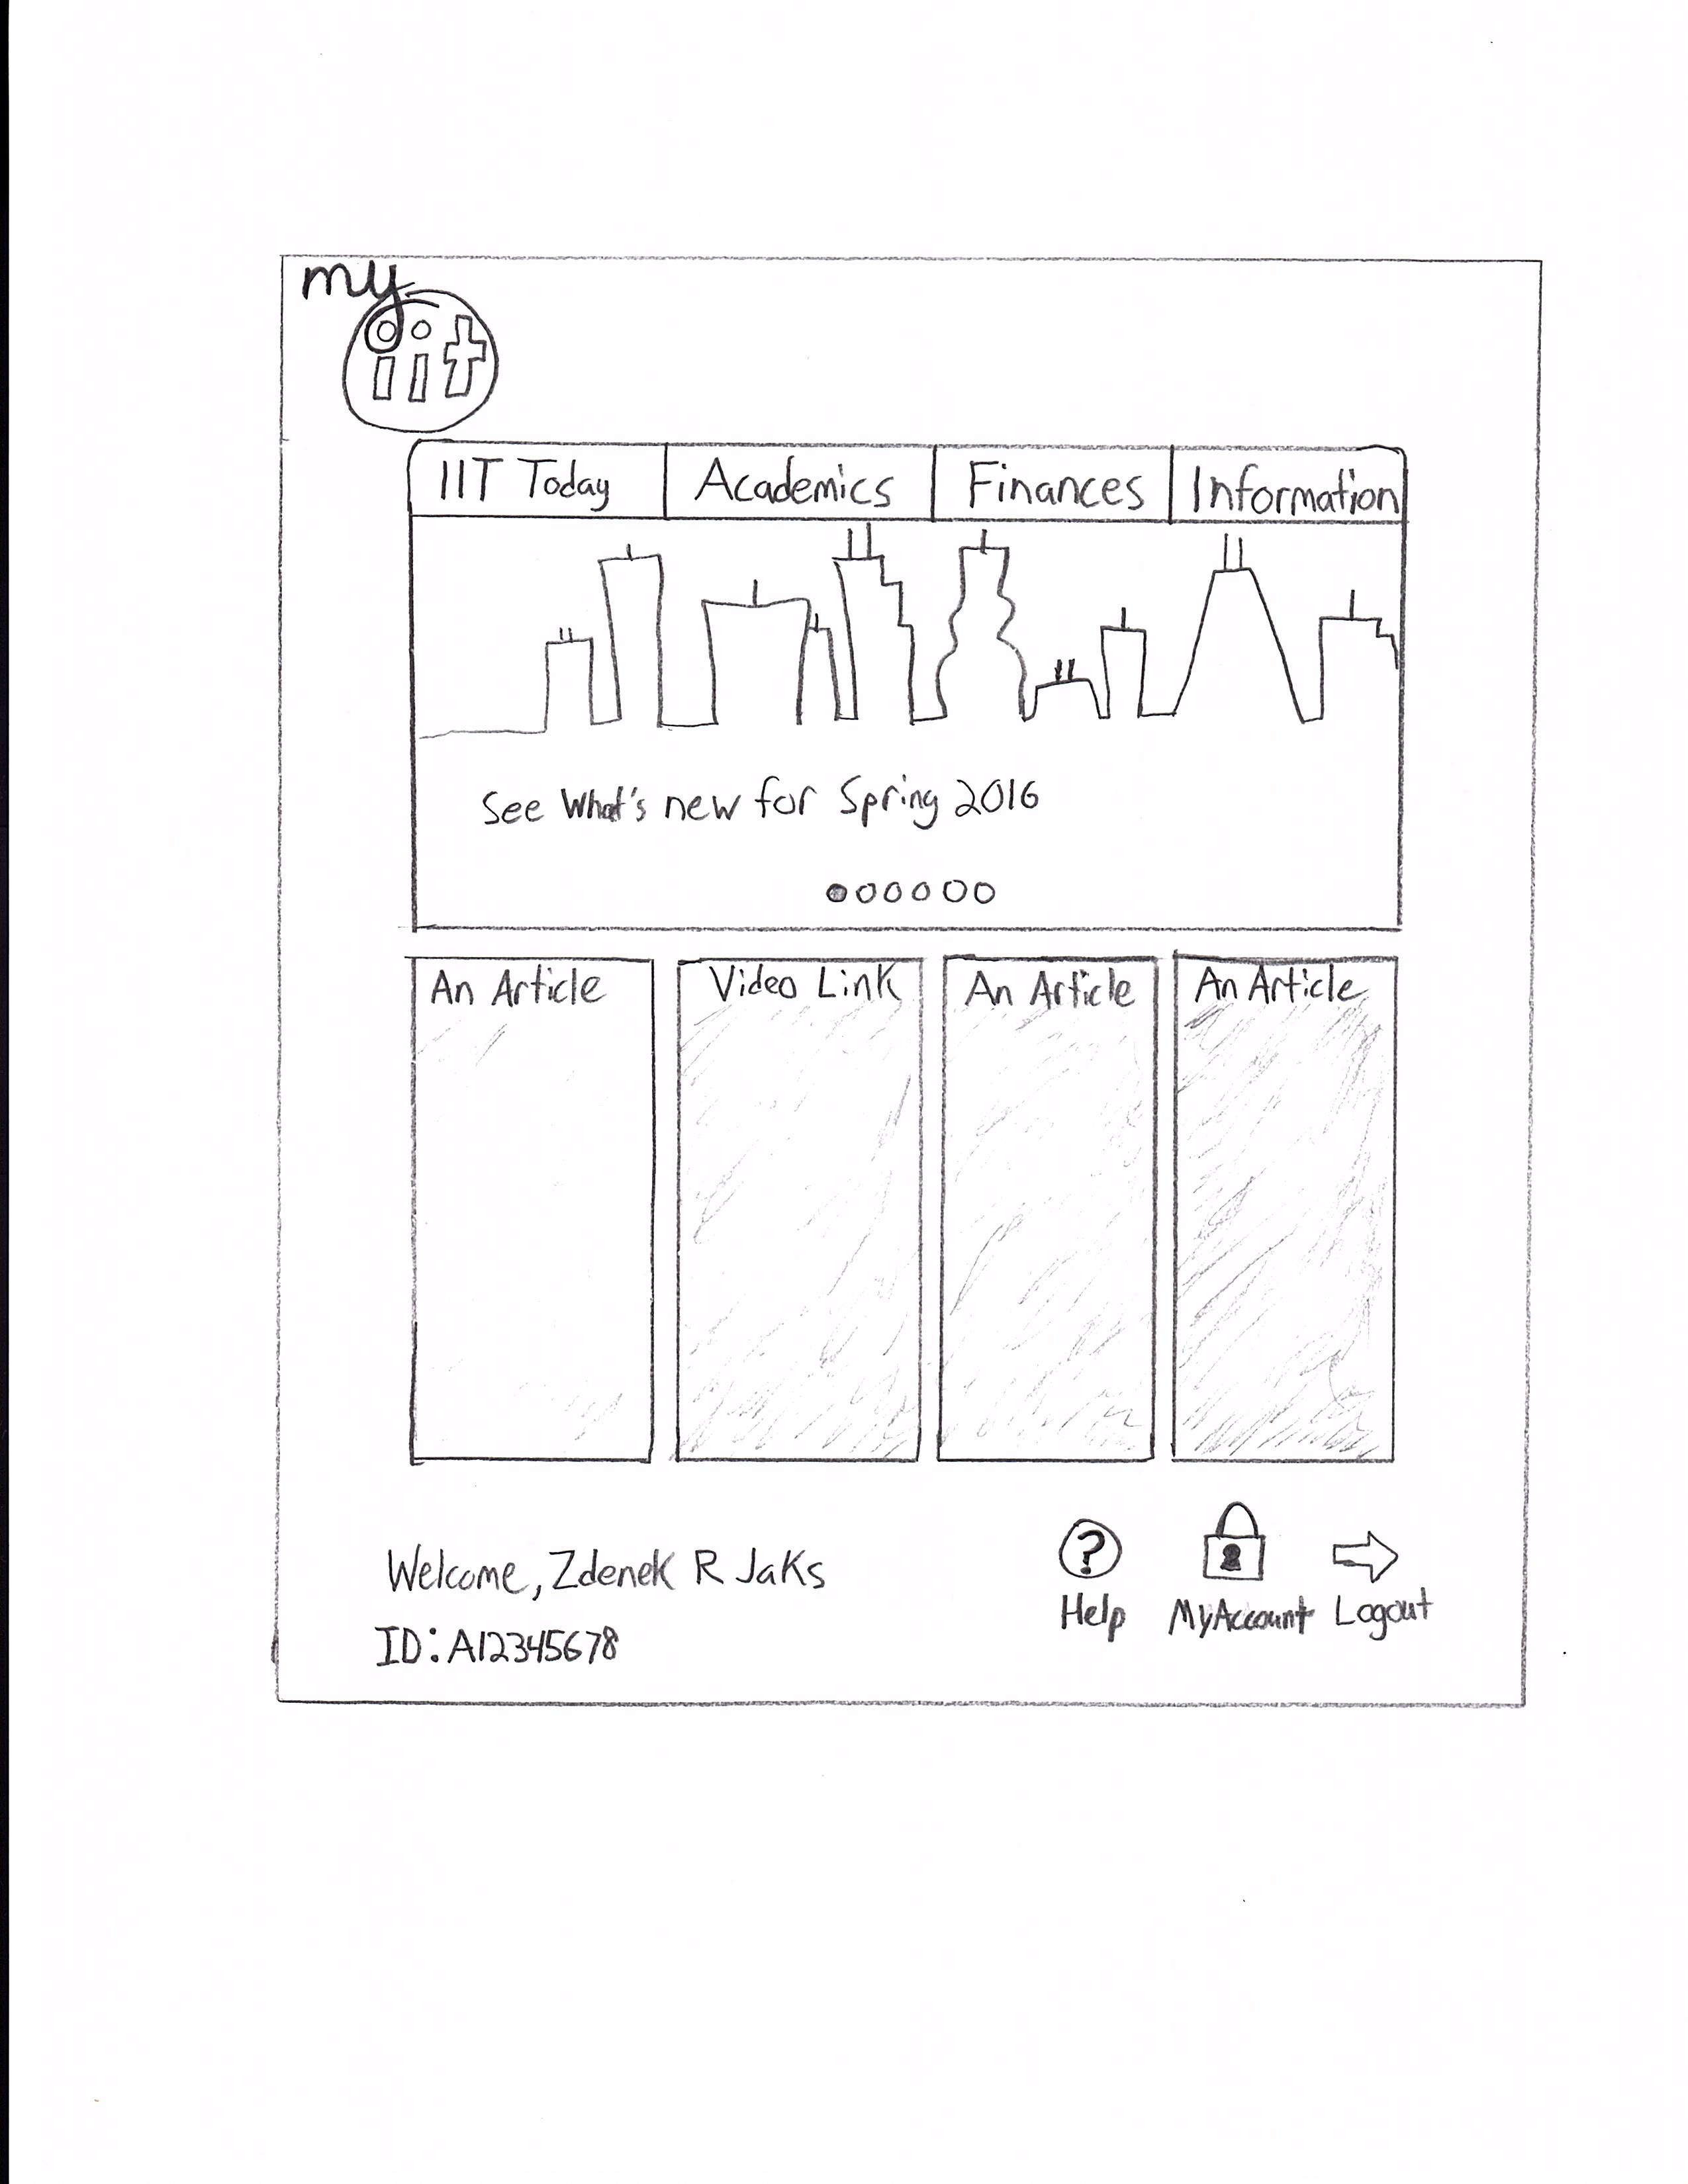 my
iit
IIT Today Academics Finances Information
See What's new for Spring 2016
An Article Video Link An Article An Article
Welcome, Zdenek R Jaks
ID: A12345678
? 
Help MyAccount Logout